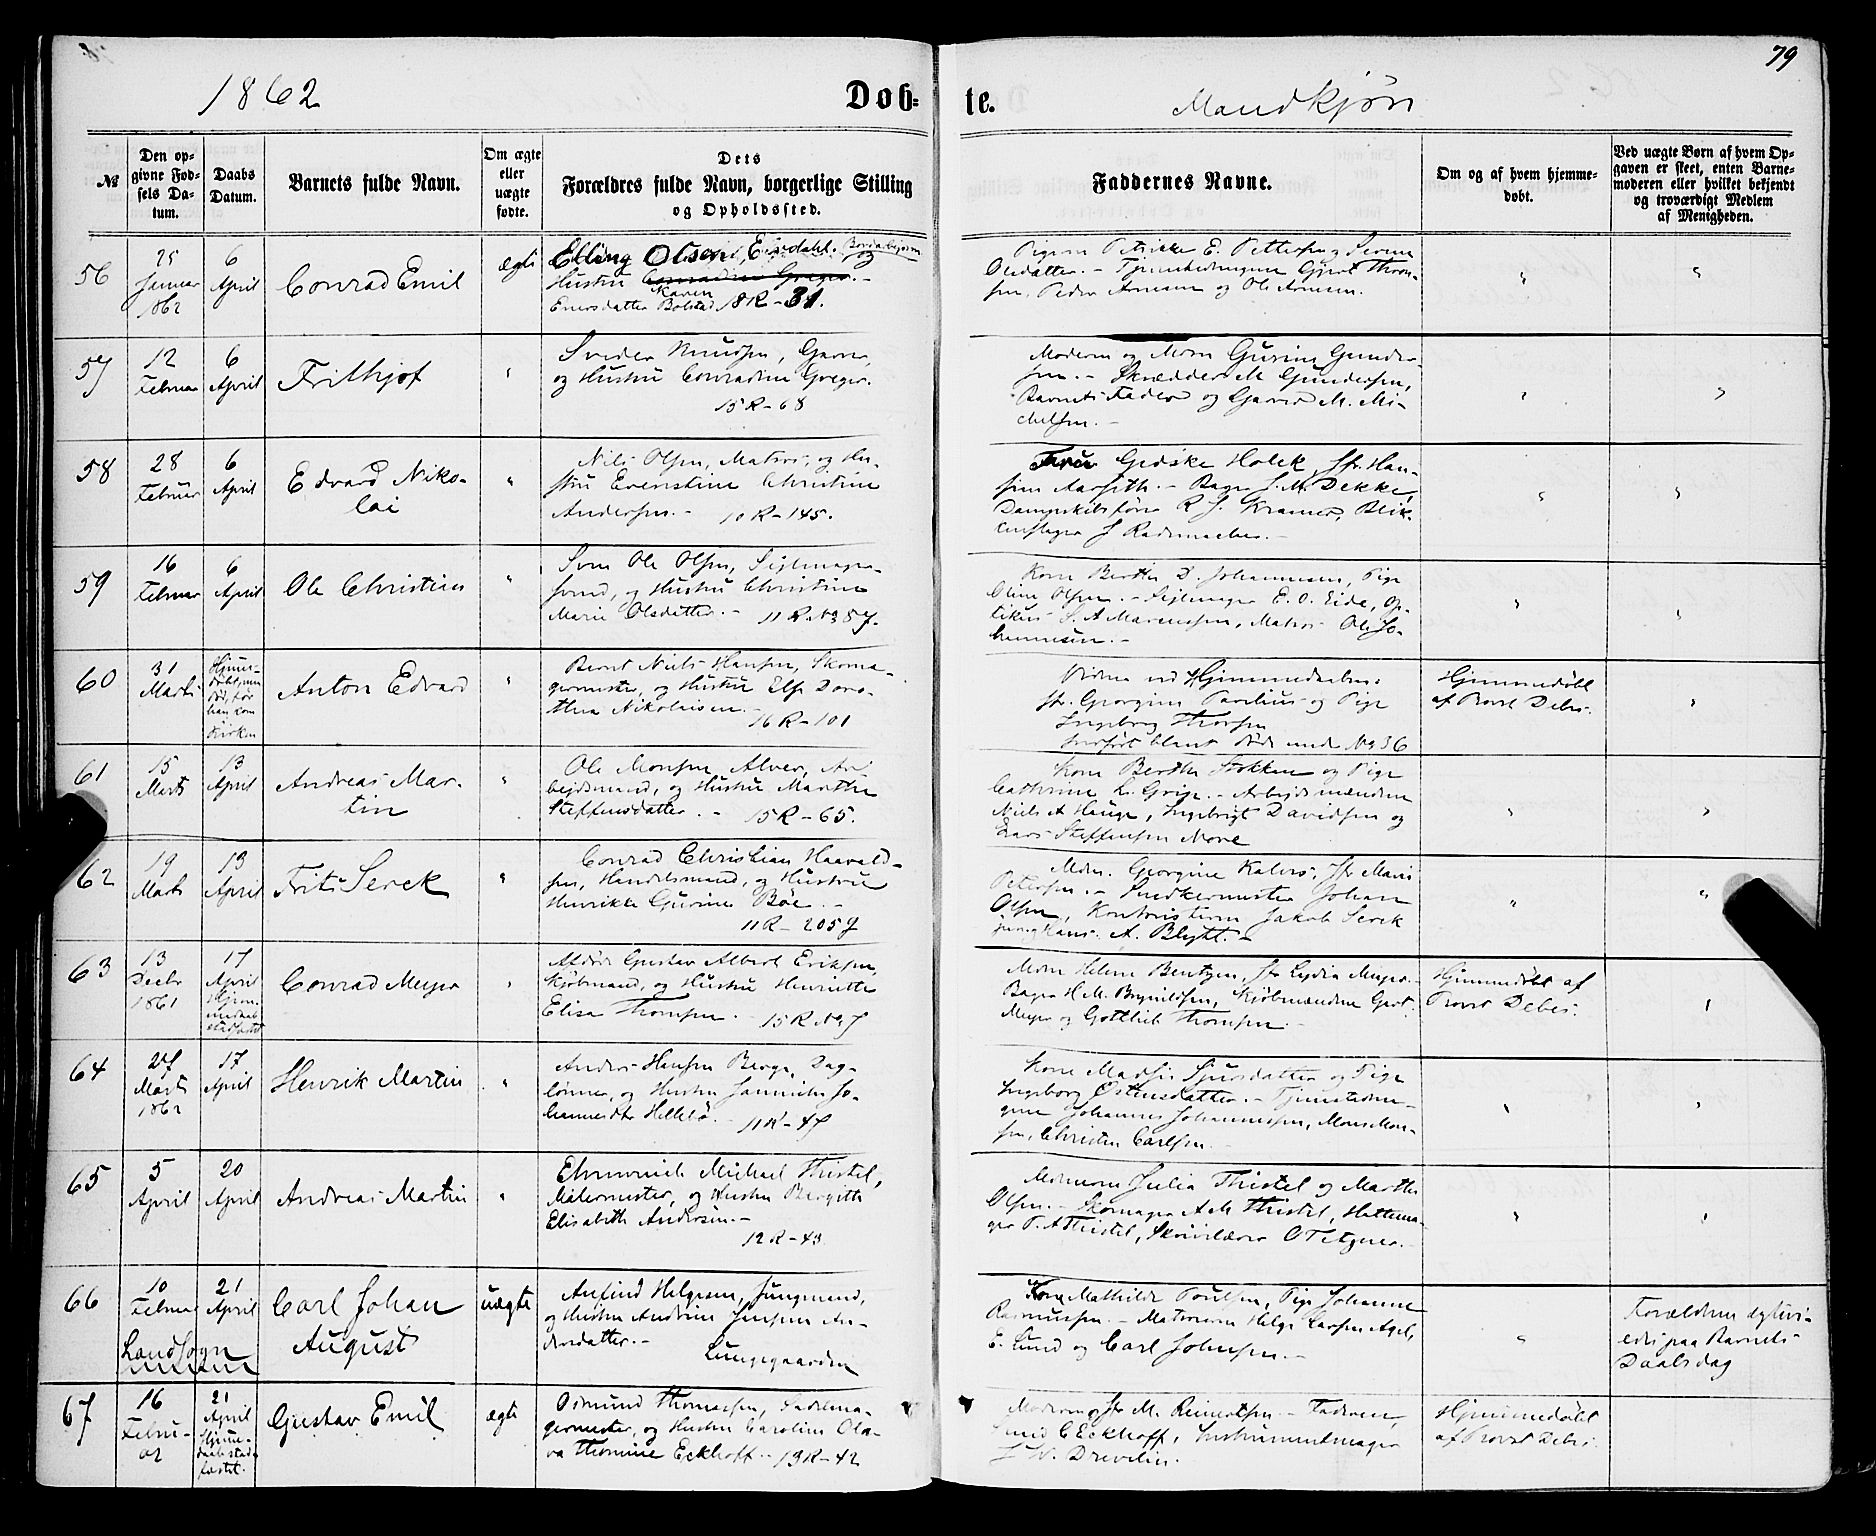 79
1862
Døb-
te.
Mandkjøn
№
Den op-
givne Fød-
sels Da-
tum.
Daabs
Datum.
Barnets fulde Navn.
Om ægte
eller
uægte
fødte.
Dets
Forældres fulde Navn, borgerlige Stilling
og Opholdssted.
Faddernes Navne.
Om og af hvem hjemme-
døbt.
Ved uægte Børn af hvem Op-
gaven er skeet, enten Barne-
moderen eller hvilket bekjendt
og troværdigt Medlem
af Menigheden.
56
25
Januar
1862
6
April
Conrad Emil
ægte
Elling Olsen og
Hustru Conradine Greger. -
Karen
Bolstad 18R - 31.
Pigerne E. Pettersen og
Olsdatter. - Gjert Thom-
sen, Peder Arnesen og Ole Arnesen.
57
12
Februar
6
April
Frithjof
Knudsen, Garver,
og Hustru Conradine Greger.
15R - 68
Moderen og Mdm Gurine Gunder-
sen. - Skrædder M Gundersen,
Barnets Fader og Garver M. Mi-
chelsen. -
58
28
Februar
6
April
Edvard Niko-
lai
Nils Olsen, Matros, og Hu-
stru Christine
Andersen. - 10R - 145.
Gediske Holck, Jfr. Han-
sine - Bager J. M. Dekke,
Dampskibsfører R J. Kramer, Blik-
kenslager J Rademacher. -
59
16
Februar
6
April
Ole Christian
Ole Olsen, Seilmager-
svend, og Hustru Christine
Marie Olsdatter. - 11R
Kone Berthe D. Johannesen, Pige
Oline Olsen. - Seilmager E. O. Eide, Op-
tikus S. A Marcussen, Matros Ole Jo-
hannesen. -
60
31
Marts
Hjemme-
døbt, men
død, før
han kom
i Kirken
Anton Edvard
Bernt Niels Hansen, Skoma-
germester, og Hustru Else Doro-
thea Nikolaisen. -
16R - 101
Vidner ved Hjemmedaaben:
Jfr. Georgine og Pige
Ingeborg Thorsen
indført blandt døde under No 36
Hjemmedøbt
af Provst Debes.
61
15
Marts
13
April
Andreas Mar-
tin
Ole Monsen Alver, Ar-
beidsmand, og Hustru Marthe
Steffensdatter. - 15R - 65.
Kone Berthe Stokken og Pige
Cathrine L. Grip. - Arbeidsmændene
Niels A Hauge, Ingebrigt Davidsen og
Lars Steffensen More
62
19
Marts
13
April
Frits Serck
Conrad Christian Haavald-
sen, Handelsmand, og Hustru
Henrikke Gurine Bøe. -
11R - 205
Mdm. Georgine Jfr Marie
Petersen. - Snedkermester Johan
Olsen, Kontoristerne Jakob Serck
A. Blytt. -
63
13
Decbr
1861
17
April
Hjem-
medaab
stadfæstet
Conrad Meyer
Afdøde Gustav Albert Eriksen,
Kjøbmand, og Hustru Henriette
Elisa Thomsen. - 15R
Mdm Helene Bentzen, Jfr Lydia Meyer. -
Bager H. M. Brynildsen, Kjøbmændene Gert
Meyer og Gottlieb Thomsen. -
Hjemmedøbt af
Provst Debes.
64
27
Marts
1862
17
April
Henrik Martin
Anders Hansen Berge, Dag-
lønner, og Hustru Jo-
hannesdtr Hellebø. - 11R - 47
Kone Madsi Sjursdatter og Pige
Ingeborg Østensdatter. - Tjenestedren-
gene Johannes Johannessen, Mons Mon-
sen, Christen Carlsen. -
65
5
April
20
April
Andreas Martin
Michael Thistel,
Malermester, og Hustru Bergitte
Elisabeth Andersen. -
12R - 43
Julia Thistel og Marthe
Olsen. - Skomager A M Thistel, Hattema-
ger T. A Thistel,
66
10
Februar
21
April
Carl Johan
August
uægte
Anfind Helgesen, Jungmand,
og Hustru Andrine Jensen An-
dersdatter. -
Lungegaarden
Landsogn
Kone Mathilde Poulsen, Pige Johanne
Rasmussen. - Matroserne Helge Larsen
E. Lund og Carl Johnsen. -
Forældrene
paa Barnets
Daabsdag
67
16
Febru-
ar
21
April
Hjemme-
daab stad-
fæstet.
Gustav Emil
ægte
Osmund Thomassen, Sadelma-
germester, og Hustru Caroline Ola-
va Thomine Eckhoff. - 13R - 42
Moderen og Jfr M. Reinertsen. - Faderen,
C Eckhoff, Instrumentmager
Drevelin.
Hjemmedøbt
af Provst Debes.